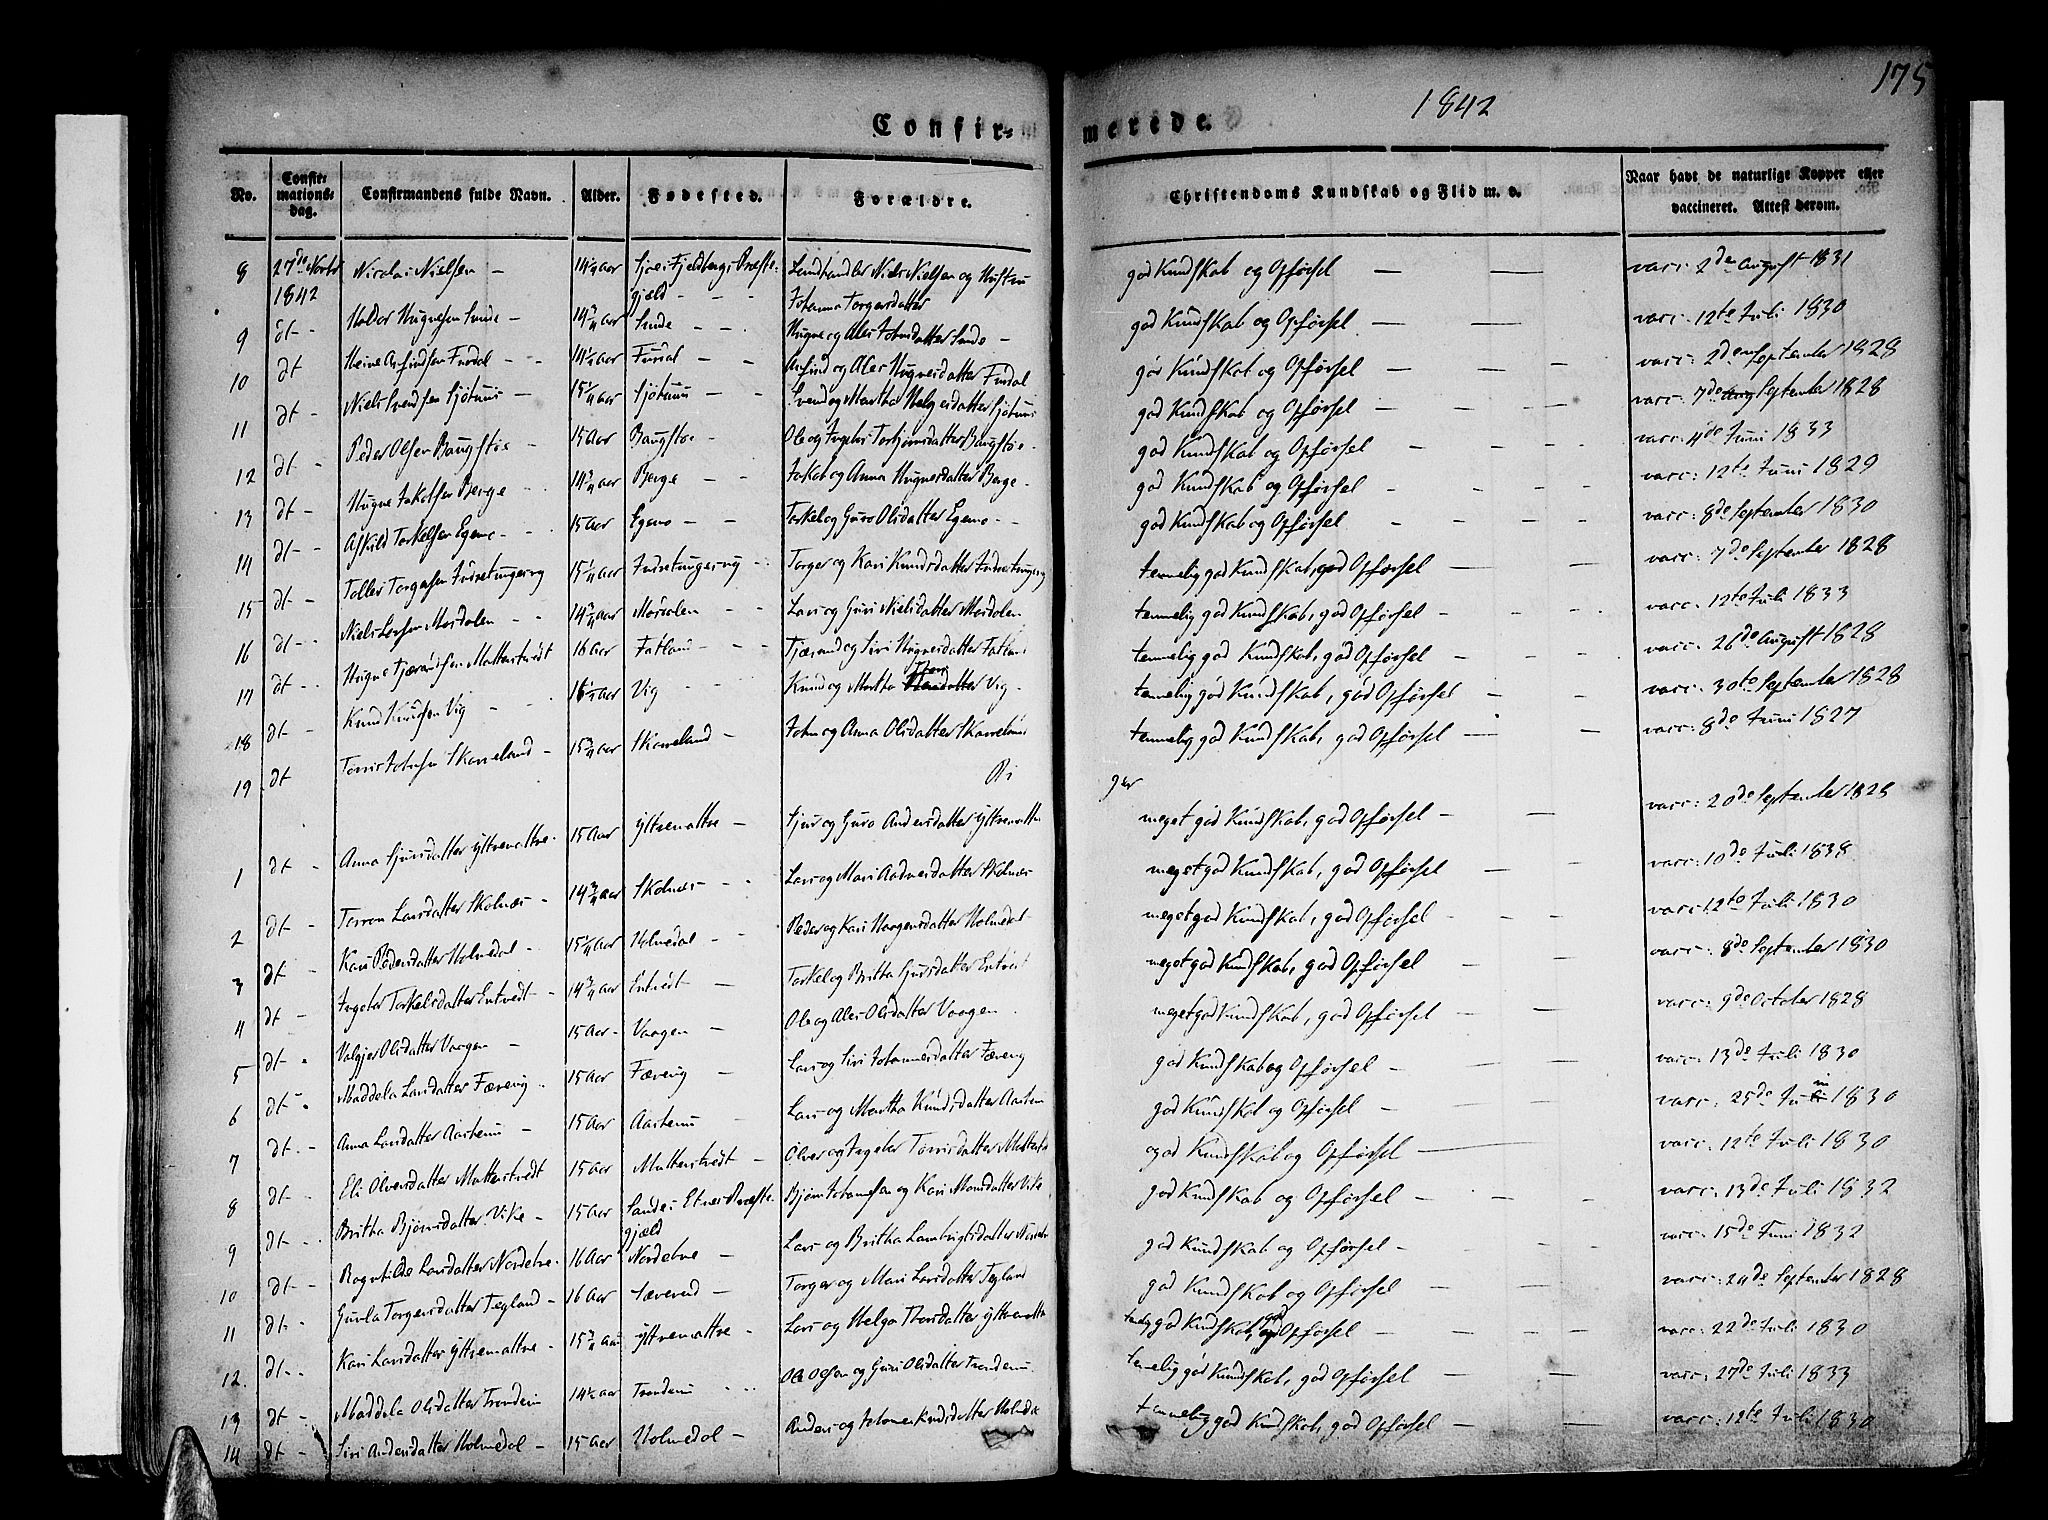 175
1842
Confir- merede.
No. Confir-mations-dag. Confirmandens fulde Navn. Alder. Fødested. Forældre. Christendoms Kundskab og Flid m. v. Naar havt de naturlige Kopper eller vaccineret. Attest derom.
8 27de Novbr 1842 Nicolai Nielsen - 14 1/4 Aar Fjeldbergs Præste-gjæld - - Niels Nielsen og Hustru Johanna Torgersdatter god Kundskab og Opførsel vacc: 2den August 1831
9 dt - Haldor Hugnesen Sunde - 14 3/4 Aar Sunde - - Hugne og Ales Johnsdatter Sunde - god Kundskab og Opførsel vacc: 12te Juli 1830
10 dt Heine Arfindsen Furdal - - 14 1/2 Aar Furdal - - Arfind og Ales Hugnesdatter Furdal god Kundskab og Opførsel vacc: 2den September 1828
11 dt - Niels Svendsen - 15 1/4 Aar Svend og Martha Helgesdatter god Kundskab og Opførsel vacc: 7de September 1828
12 dt - Peder Olsen Baugstøe - 15 Aar Baugstøe - Ole og Ingeber Torbjørnsdatter Baugstøe - god Kundskab og Opførsel vacc: 4de Juni 1833
13 dt - Hugne Jakobsen Berge - 14 3/4 Aar Berge - - Jakob og Anna Hugnesdatter Berge - god Kundskab og Opførsel vacc: 12te Juni 1829
14 dt - Askild Torkelsen Egemo - 15 Aar Egemo - - Torkel og Guro Olsdatter Egemo - - god Kundskab og Opførsel vacc: 8de September 1830
15 dt - Tollev Torgersen 15 1/4 Aar Torger og Kari Knudsdatter temmelig god Kundskab, god Opførsel vacc: 7de September 1828
16 dt - Niels Larsen Mosdalen - - 14 3/4 Aar Mosdalen - - Lars og Guri Nielsdatter Mosdalen temmelig god Kundskab, god Opførsel vacc: 12te Juli 1833
17 dt - Hugne Tjærandsen Matterstvedt 16 Aar Fatland - - Tjærand og Siri Hugnesdatter Fatland temmelig god Kundskab, god Opførsel vacc: 26de August 1828
18 dt - Knud Knudsen Vig - - 16 1/2 Aar Vig - - Knud og Martha Vig - temmelig god Kundskab, god Opførsel vacc: 30te September 1828
19 dt Tørris Johnsen Skorreland - 15 3/4 Aar Skorreland - John og Anna Olsdatter Skorreland temmelig god Kundskab, god Opførsel vacc: 8de Juni 1827
Pi ger
1 dt - Anna Sjursdatter Yttremattre - 15 Aar Yttremattre - Sjur og Guro Andersdatter Yttremattre meget god Kundskab, god Opførsel vacc: 20de September 1828
2 dt - Larsdatter Skolnæs - 14 3/4 Aar Skolnæs - - Lars og Mari Skolnæs meget god Kundskab, god Opførsel vacc: 10de Juli 1838
3 dt - Kari Pedersdatter Holmedal - 15 1/4 Aar Holmedal - Peder og Kari Holmedal meget god Kundskab, god Opførsel vacc: 12te Juli 1830
4 dt - Ingeber Torkelsdatter Entvedt - 14 3/4 Aar Entvedt - Torkel og Britta Entvedt meget god Kundskab, god Opførsel vacc: 8de September 1830
5 dt - Valgjer Olsdatter Vaagen - 15 Aar - Vaagen - Ole og Ales Olsdatter Vaagen meget god Kundskab, god Opførsel vacc: 9de October 1828
6 dt - Maddela Larsdatter Færevig - 15 Aar Færevig - Lars og Siri Johannesdatter Færevig god Kundskab og Opførsel vacc: 13de Juli 1830
7 dt - Anna Larsdatter - 15 Aar Lars og Martha Knudsdatter god Kundskab og Opførsel vacc: 25de Juni 1830
8 dt - Eli Olversdatter Matterstvedt 15 Aar Matterstvedt - Olver og Ingeber Tørrisdatter god Kundskab og Opførsel vacc: 12te Juli 1830
9 dt - Britha Bjørnsdatter Vike - 15 Aar Sande i Etne Præste-gjæld Bjørn Johannesen og Kari Monsdatter Vike god Kundskab og Opførsel vacc: 13de Juli 1832
10 dt - Ragnhilde Larsdatter - 16 Aar Lars og Britha god Kundskab og Opførsel vacc: 15de Juni 1832
11 dt - Gunla Torgersdatter Tegland - 16 Aar - Torger og Mari Larsdatter Tegland god Kundskab og Opførsel vacc: 24de September 1828
12 dt - Kari Larsdatter Yttremattre - 15 3/4 Aar Yttremattre - Lars og Helga Thorsdatter Yttremattre god Kundskab, god Opførsel vacc: 22de Juli 1830
13 dt - Maddela Olsdatter 14 1/2 Aar Ole Olsen og Guri Olsdatter temmelig god Kundskab, god Opførsel vacc: 27de Juli 1833
14 dt - Siri Andersdatter Holmedal - 15 Aar Holmedal - Anders og Johanna Knudsdatter Holmedal temmelig god Kundskab, god Opførsel vacc: 12te Juli 1830